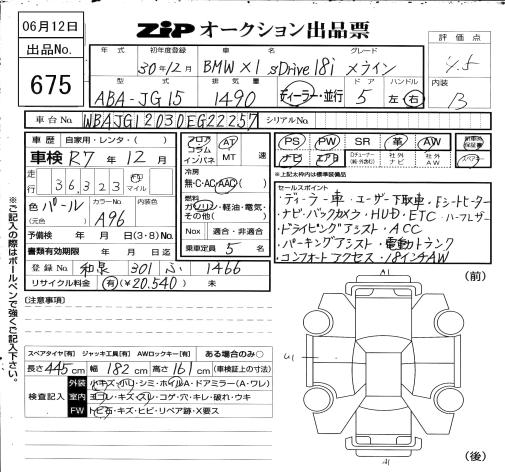 06月12日
ZIP オークション出品票
出品No.
675
年式 初年度登録 車名 グレード
30年12月 BMW X1 sDrive 18i xライン
型式 排気量 ドア ハンドル
ABA-JG15 1490 ディーラー・並行 5 左 右
評価点
4.5
内装
B
車台No. WBAJG12030EG22257 シリアルNo.
車歴 自家用・レンタ・( )
車検 R7年12月
走行 36,323 km マイル
色 パール カラーNo. A96 内装色
(元色)
予備検 年 月 日(3・8)No.
書類有効期限 年 月 日迄
登録No. 和泉 301 ふ 1466
リサイクル料金 有(¥20,540) 未
フロア コラム インパネ
AT MT 速
冷房
無・C・AC・AAC( )
燃料
ガソリン・軽油・電気・その他( )
Nox 適合・非適合
乗車定員 5名
PS PW SR 革 AW
ナビ エアB 社外ナビ 社外AW
※上記太枠内は標準装備品
セールスポイント
・ディーラー車・ユーザー下取車・Dシートヒーター
・ナビ・バックカメラ・HUD・ETC ハーフレザー
・ドライビングアシスト・ACC
・パーキングアシスト・電動トランク
・コンフォートアクセス・18インチAW
[注意事項]
スペアタイヤ[有] ジャッキ工具[有] AWロックキー[有] ある場合のみ○
長さ445cm 幅182cm 高さ161cm (車検証上の寸法)
検査記入
外装 小キズ・小凹・シミ・ホイルA・ドアミラー(A・ワレ)
室内 ヨゴレ・キズ・スレ・コゲ・穴・キレ・破れ・ウキ
FW トビ石・キズ・ヒビ・リペア跡・X要ス
※ご記入の際はボールペンで強くご記入下さい。
(前)
A1
U1
A1
(後)